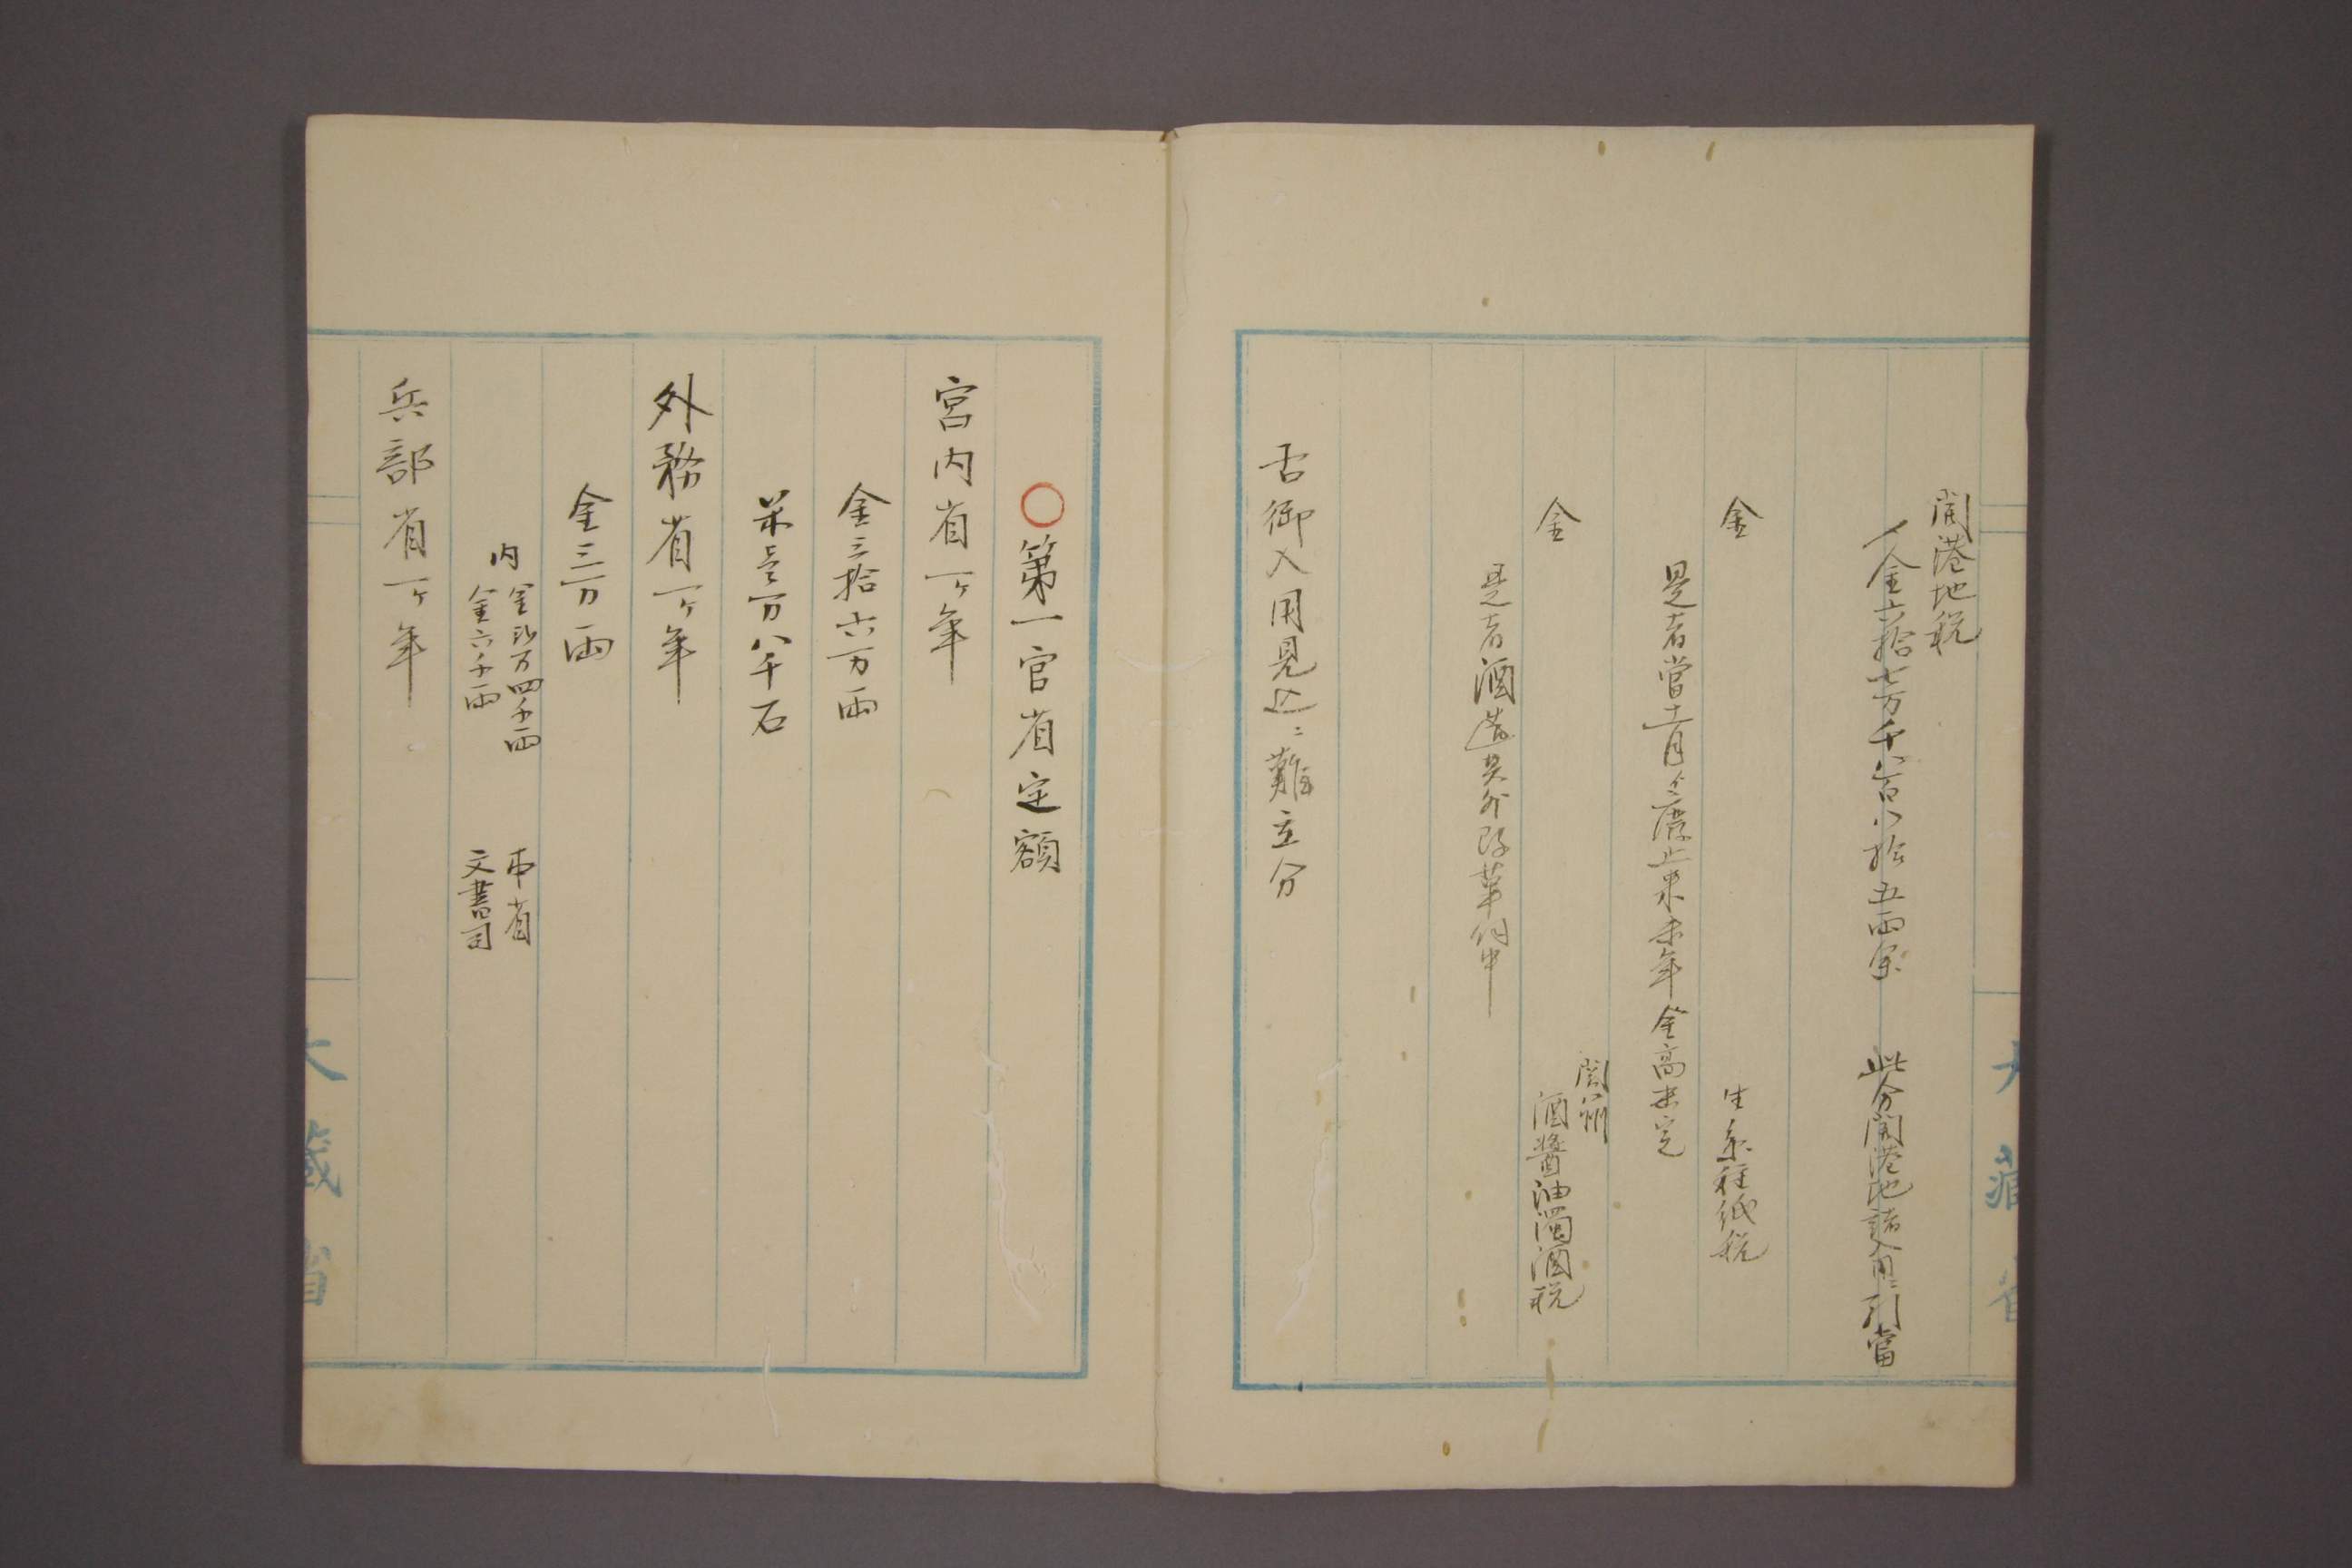 開港地税
金六拾七万千六百八拾五両余　此分開港地諸入用ニ引當
金　生糸種紙税
是者當十一月ゟ廃止来未年金高未定
金　関八州酒醤油濁酒税
是者酒造其外改革伺中
右御入用見込ニ難立分
大藏省
○第一官省定額
宮内省一ヶ年
金三拾六万両
米壱万八千石
外務省一ヶ年
金三万両
内
金弐万四千両　本省
金六千両　文書司
兵部省一ヶ年
大藏省